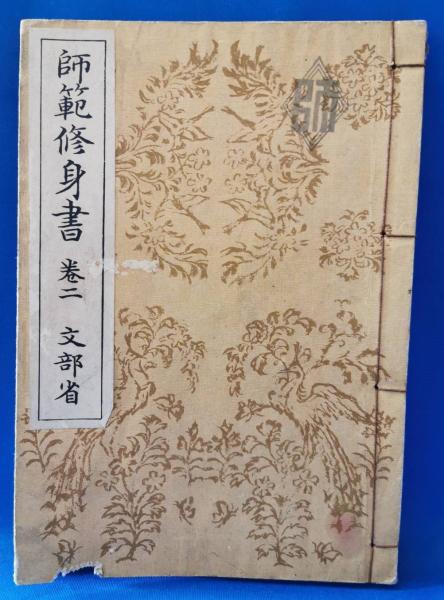 師範修身書 巻二 文部省
師